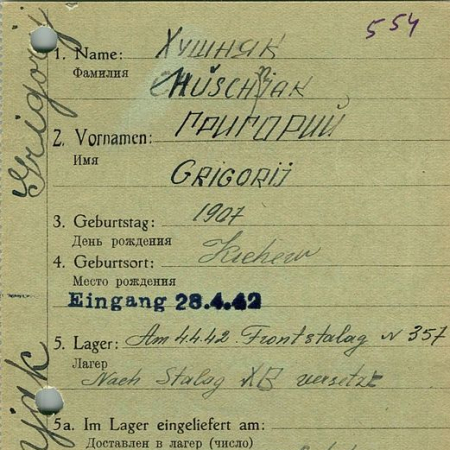 554
1. Name: Хушняк
Фамилия
CHUŠCHNJAK
2. Vornamen: ГРИГОРИЙ
Имя
GRIGORIJ
3. Geburtstag: 1907
День рождения
4. Geburtsort:
Место рождения
Eingang 28.4.42
5. Lager: Am 4.4.42. Frontstalag N 357
Лагерь
Nach Stalag XB versetzt
5a. Im Lager eingeliefert am:
Доставлен в лагерь (число)
Grigorij
njak